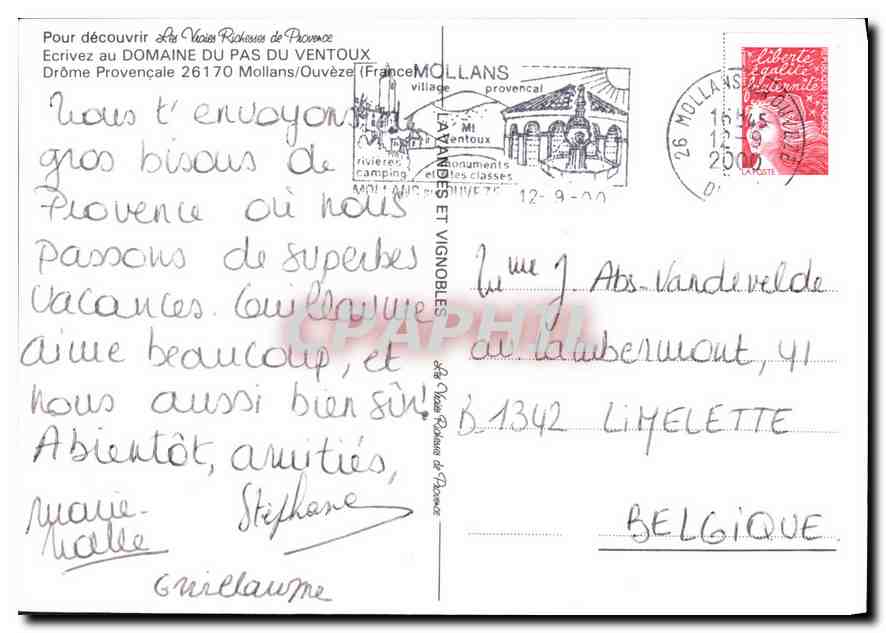 Pour découvrir Les Vraies Richesses de Provence
Ecrivez au DOMAINE DU PAS DU VENTOUX
Drôme Provençale 26170 Mollans/Ouvèze (France)
MOLLANS
village provençal
Mt
Ventoux
rivières
camping
monuments
et sites classés
MOLLANS SUR OUVEZE 12-9-00
liberté
égalité
fraternité
RÉPUBLIQUE FRANÇAISE
LA POSTE
26 MOLLANS
16H45
12-9
2000
Nous t'envoyons de
gros bisous de
Provence où nous
passons de superbes
vacances. Guillaume
aime beaucoup, et
nous aussi bien sûr!
Abientôt, amitiés,
Marie-
Stéphane
Guillaume
LAVANDES ET VIGNOBLES
Les Vraies Richesses de Provence
Mme J. Abs-Vandevelde
av. Lambermont, 41
B.1342 LIMELETTE
BELGIQUE
CPAPHIL